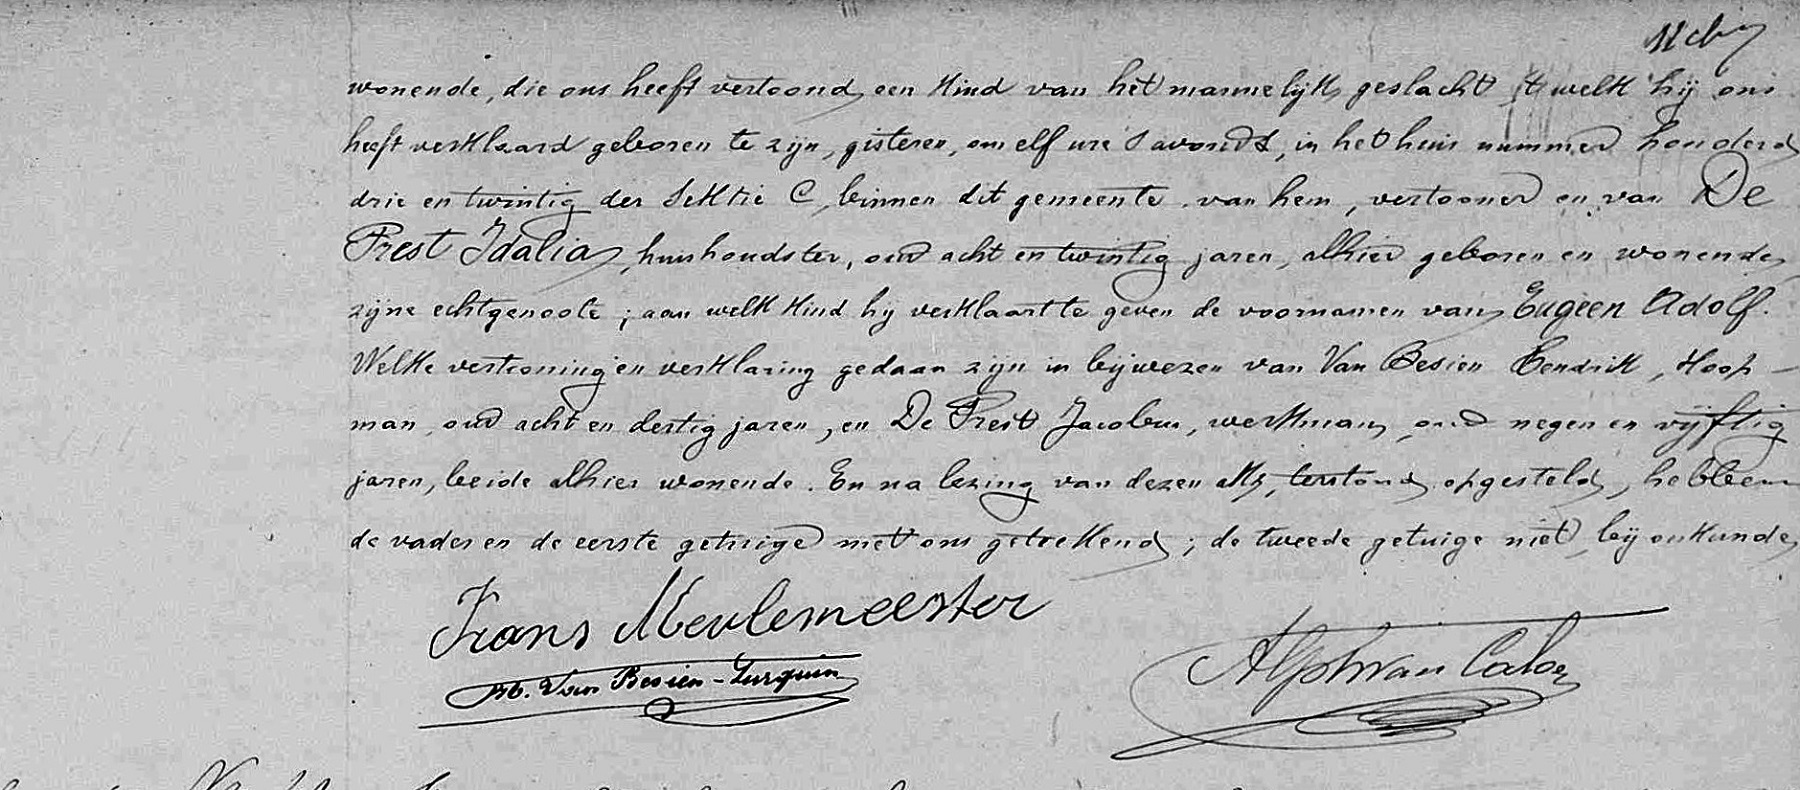 wonende, die ons heeft vertoond een kind van het mannelijk geslacht, 't welk hij ons
heeft verklaard geboren te zijn, gisteren, om elf ure 's avonds, in het huis nummer honderd
drie en twintig der Sektie C, binnen dit gemeente van hem, vertooner en van De
Prest Idalia, huishoudster, oud acht en twintig jaren, alhier geboren en wonende,
zijne echtgenoote; aan welk kind hij verklaart te geven de voornamen van Eugeen Adolf.
Welke vertooning en verklaring gedaan zijn in bijwezen van Van Besien Hendrik, koop-
man, oud acht en dertig jaren, en De Prest Jacobus, werkman, oud negen en vijftig
jaren, beide alhier wonende. En na lezing van dezen akt, terstond opgesteld, hebben
de vader en de eerste getuige met ons geteekend; de tweede getuige niet, bij onkunde,
Frans Meulemeester
H. Van Besien-Turquin
Alph Van